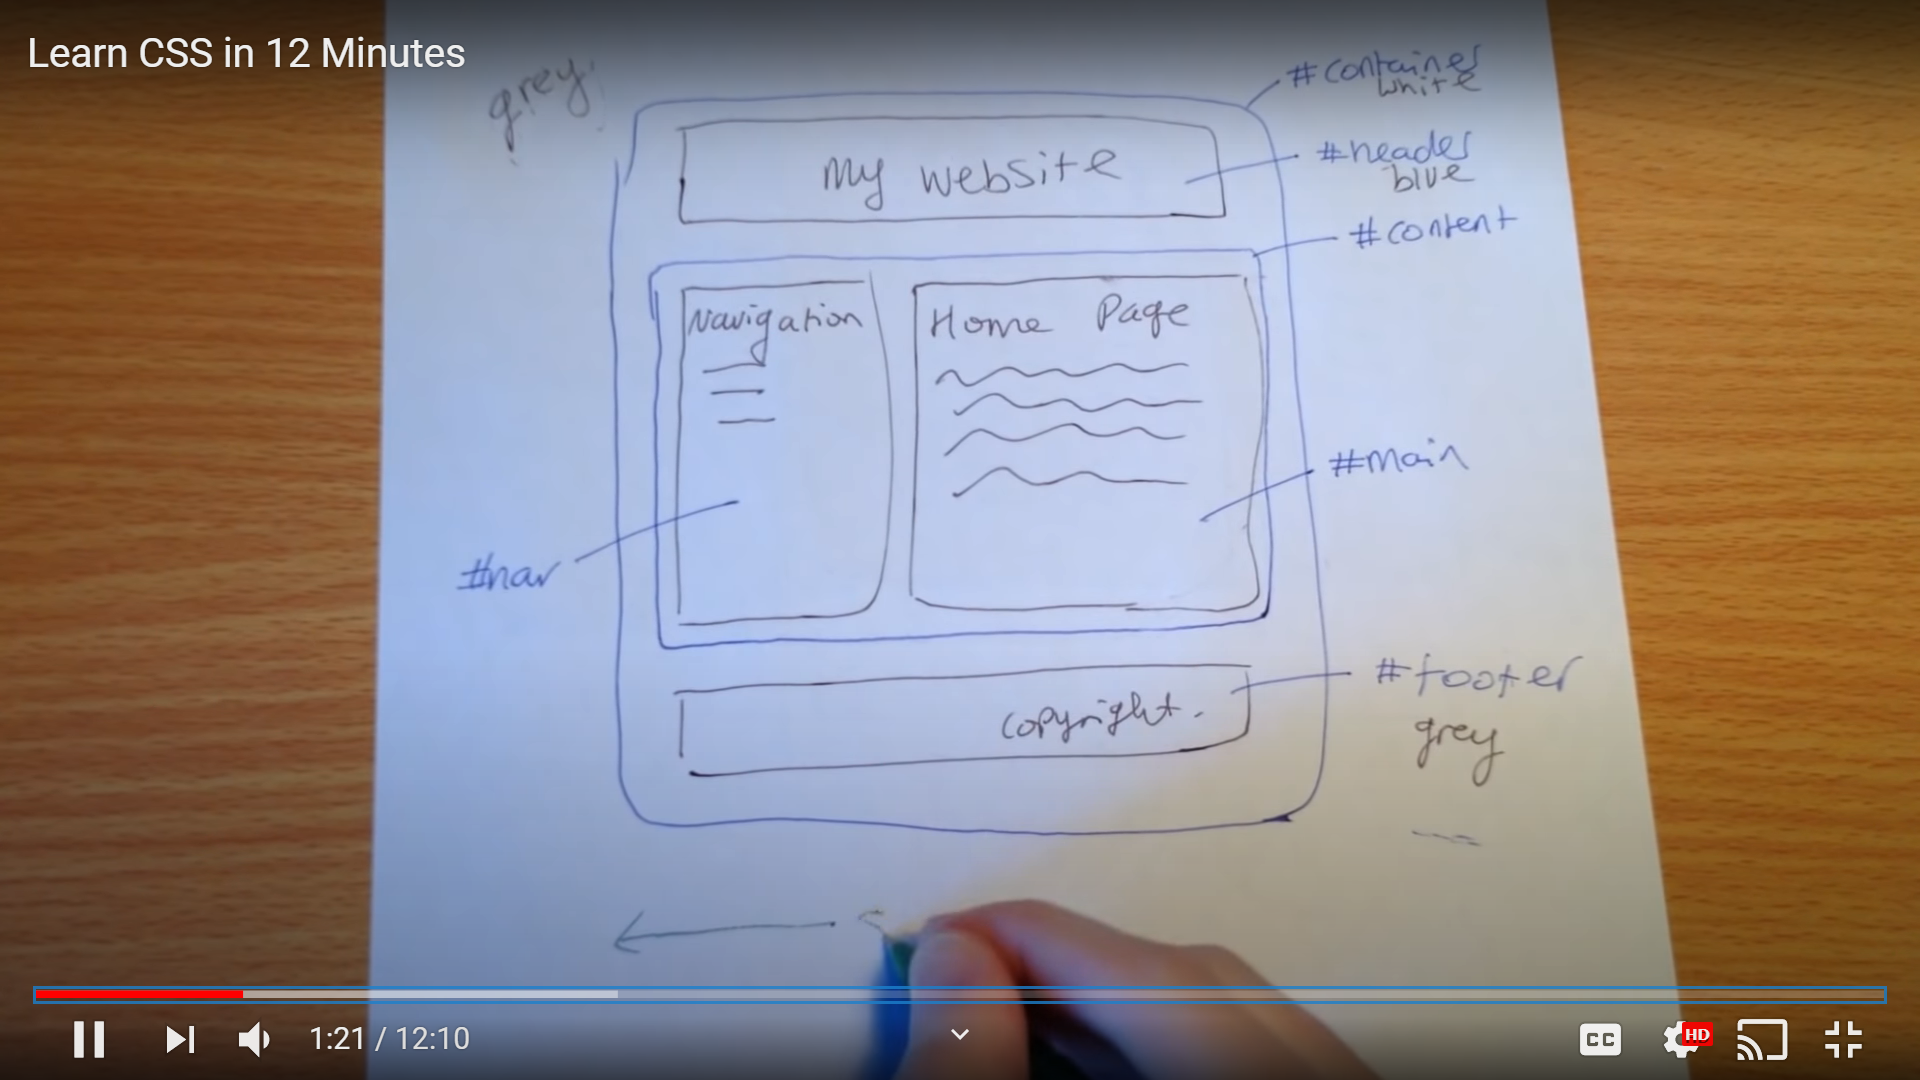 Learn CSS in 12 Minutes
grey
#container
white
My website
#header
blue
#content
Navigation
Home Page
#main
#nav
#footer
copyright.
grey
1:21 / 12:10
CC
HD